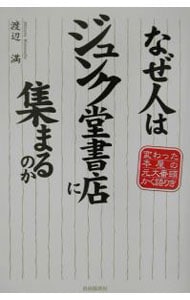 なぜ人は
ジュンク堂書店に
集まるのか
渡辺 満
変わった
本屋の
元大番頭
かく語りき
自由国民社